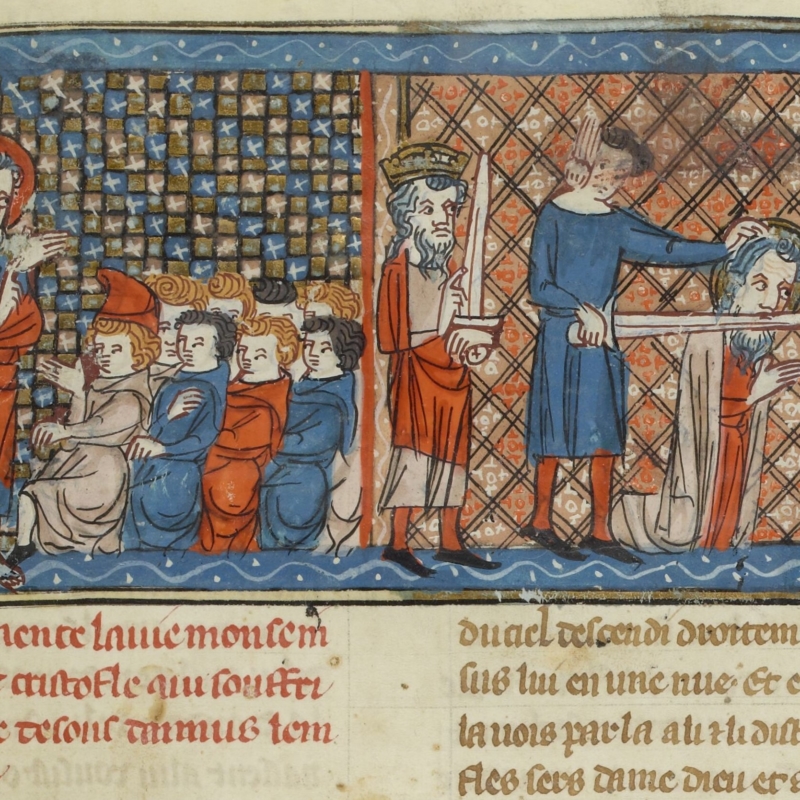 mence la vie monsein
cristofle qui souffri
desous dannus lem
du ciel descendi droitem
sus lui en une nue. Et
la vois parla a li ⁊ li dist
fles sers dame dieu et